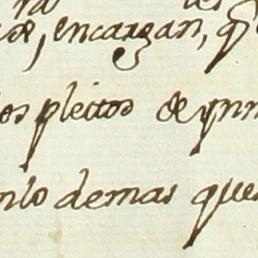 , encargan, q
os pleitos de ynn
nlo demas que